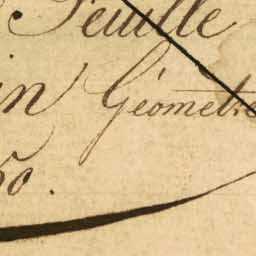 Feuille
in Géometre
50.